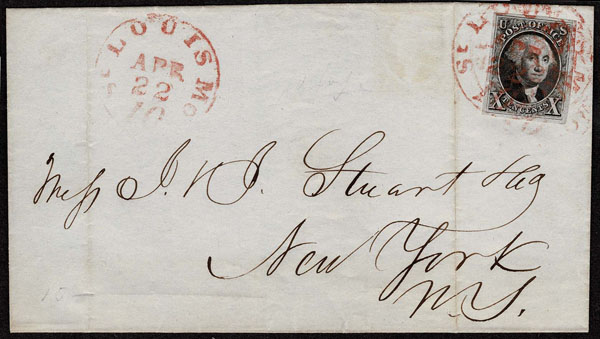 ST LOUIS Mo
APR
22
10
ST LOUIS Mo
U S
POST OFFICE
X TEN CENTS X
Mess J. & J. Stuart
New York
N.Y.